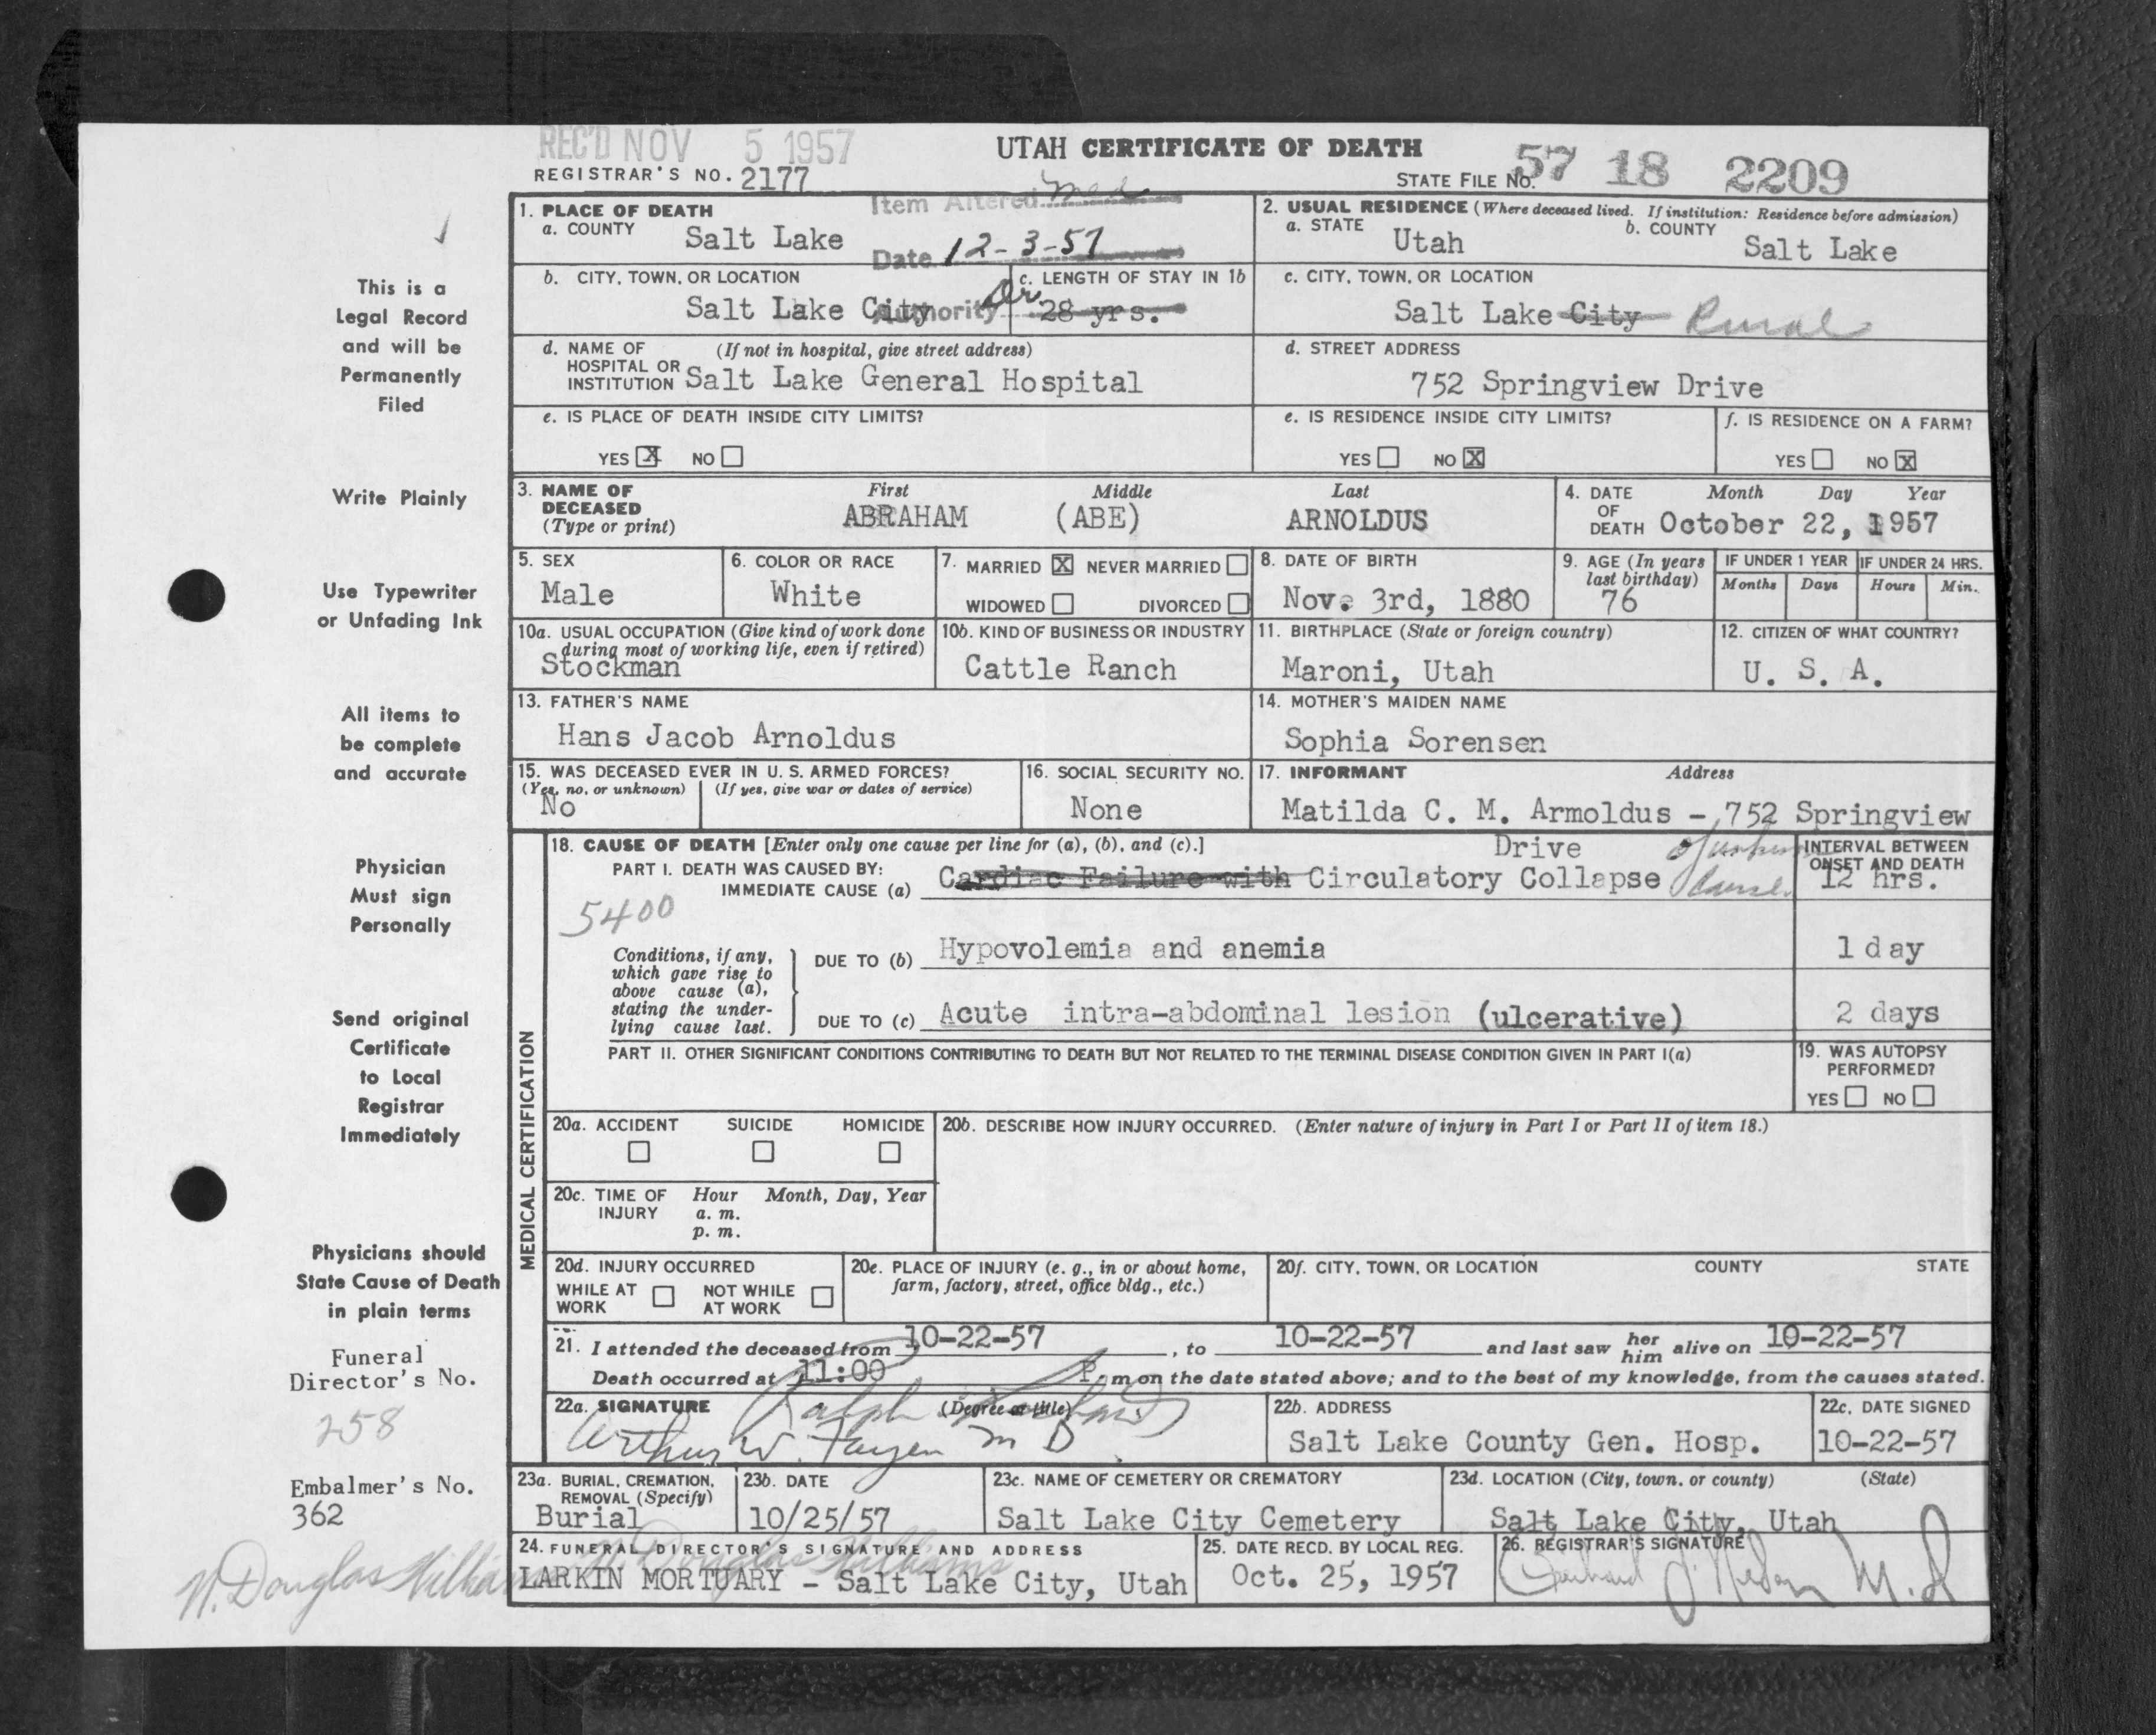 REC'D NOV 5 1957
UTAH CERTIFICATE OF DEATH
REGISTRAR'S NO. 2177
STATE FILE NO. 57 18 2209
Item Altered Med
Date 12-3-57
Authority Dr.
1. PLACE OF DEATH
a. COUNTY Salt Lake
2. USUAL RESIDENCE (Where deceased lived. If institution: Residence before admission)
a. STATE Utah
b. COUNTY Salt Lake
b. CITY, TOWN, OR LOCATION Salt Lake City
c. LENGTH OF STAY IN 1b 28 yrs.
c. CITY, TOWN, OR LOCATION
Salt Lake City Rural
d. NAME OF HOSPITAL OR INSTITUTION (If not in hospital, give street address)
Salt Lake General Hospital
d. STREET ADDRESS
752 Springview Drive
e. IS PLACE OF DEATH INSIDE CITY LIMITS?
YES X NO
e. IS RESIDENCE INSIDE CITY LIMITS?
YES NO X
f. IS RESIDENCE ON A FARM?
YES NO X
3. NAME OF DECEASED (Type or print)
First Middle Last
ABRAHAM (ABE) ARNOLDUS
4. DATE OF DEATH Month Day Year
October 22, 1957
5. SEX
Male
6. COLOR OR RACE
White
7. MARRIED X NEVER MARRIED
WIDOWED DIVORCED
8. DATE OF BIRTH
Nov. 3rd, 1880
9. AGE (In years last birthday)
76
IF UNDER 1 YEAR
Months Days
IF UNDER 24 HRS.
Hours Min.
10a. USUAL OCCUPATION (Give kind of work done during most of working life, even if retired)
Stockman
10b. KIND OF BUSINESS OR INDUSTRY
Cattle Ranch
11. BIRTHPLACE (State or foreign country)
Maroni, Utah
12. CITIZEN OF WHAT COUNTRY?
U. S. A.
13. FATHER'S NAME
Hans Jacob Arnoldus
14. MOTHER'S MAIDEN NAME
Sophia Sorensen
15. WAS DECEASED EVER IN U. S. ARMED FORCES?
(Yes, no, or unknown) (If yes, give war or dates of service)
No
16. SOCIAL SECURITY NO.
None
17. INFORMANT Address
Matilda C. M. Armoldus - 752 Springview
Drive
MEDICAL CERTIFICATION
18. CAUSE OF DEATH [Enter only one cause per line for (a), (b), and (c).]
PART I. DEATH WAS CAUSED BY:
IMMEDIATE CAUSE (a) Cardiac Failure with Circulatory Collapse of cause
INTERVAL BETWEEN ONSET AND DEATH
12 hrs.
5400
Conditions, if any, which gave rise to above cause (a), stating the underlying cause last.
DUE TO (b) Hypovolemia and anemia 1 day
DUE TO (c) Acute intra-abdominal lesion (ulcerative) 2 days
PART II. OTHER SIGNIFICANT CONDITIONS CONTRIBUTING TO DEATH BUT NOT RELATED TO THE TERMINAL DISEASE CONDITION GIVEN IN PART I(a)
19. WAS AUTOPSY PERFORMED?
YES NO
20a. ACCIDENT SUICIDE HOMICIDE
20b. DESCRIBE HOW INJURY OCCURRED. (Enter nature of injury in Part I or Part II of item 18.)
20c. TIME OF INJURY Hour Month, Day, Year
a. m.
p. m.
20d. INJURY OCCURRED
WHILE AT WORK NOT WHILE AT WORK
20e. PLACE OF INJURY (e. g., in or about home, farm, factory, street, office bldg., etc.)
20f. CITY, TOWN, OR LOCATION COUNTY STATE
21. I attended the deceased from 10-22-57, to 10-22-57 and last saw her him alive on 10-22-57
Death occurred at 11:00 P. m on the date stated above; and to the best of my knowledge, from the causes stated.
22a. SIGNATURE (Degree or title)
Ralph
Arthur W. M D
22b. ADDRESS
Salt Lake County Gen. Hosp.
22c. DATE SIGNED
10-22-57
23a. BURIAL, CREMATION, REMOVAL (Specify)
Burial
23b. DATE
10/25/57
23c. NAME OF CEMETERY OR CREMATORY
Salt Lake City Cemetery
23d. LOCATION (City, town, or county) (State)
Salt Lake City, Utah
24. FUNERAL DIRECTOR'S SIGNATURE AND ADDRESS
W. Douglas Williams
LARKIN MORTUARY - Salt Lake City, Utah
25. DATE RECD. BY LOCAL REG.
Oct. 25, 1957
26. REGISTRAR'S SIGNATURE
M.D
This is a
Legal Record
and will be
Permanently
Filed
Write Plainly
Use Typewriter
or Unfading Ink
All items to
be complete
and accurate
Physician
Must sign
Personally
Send original
Certificate
to Local
Registrar
Immediately
Physicians should
State Cause of Death
in plain terms
Funeral
Director's No.
258
Embalmer's No.
362
W. Douglas Williams